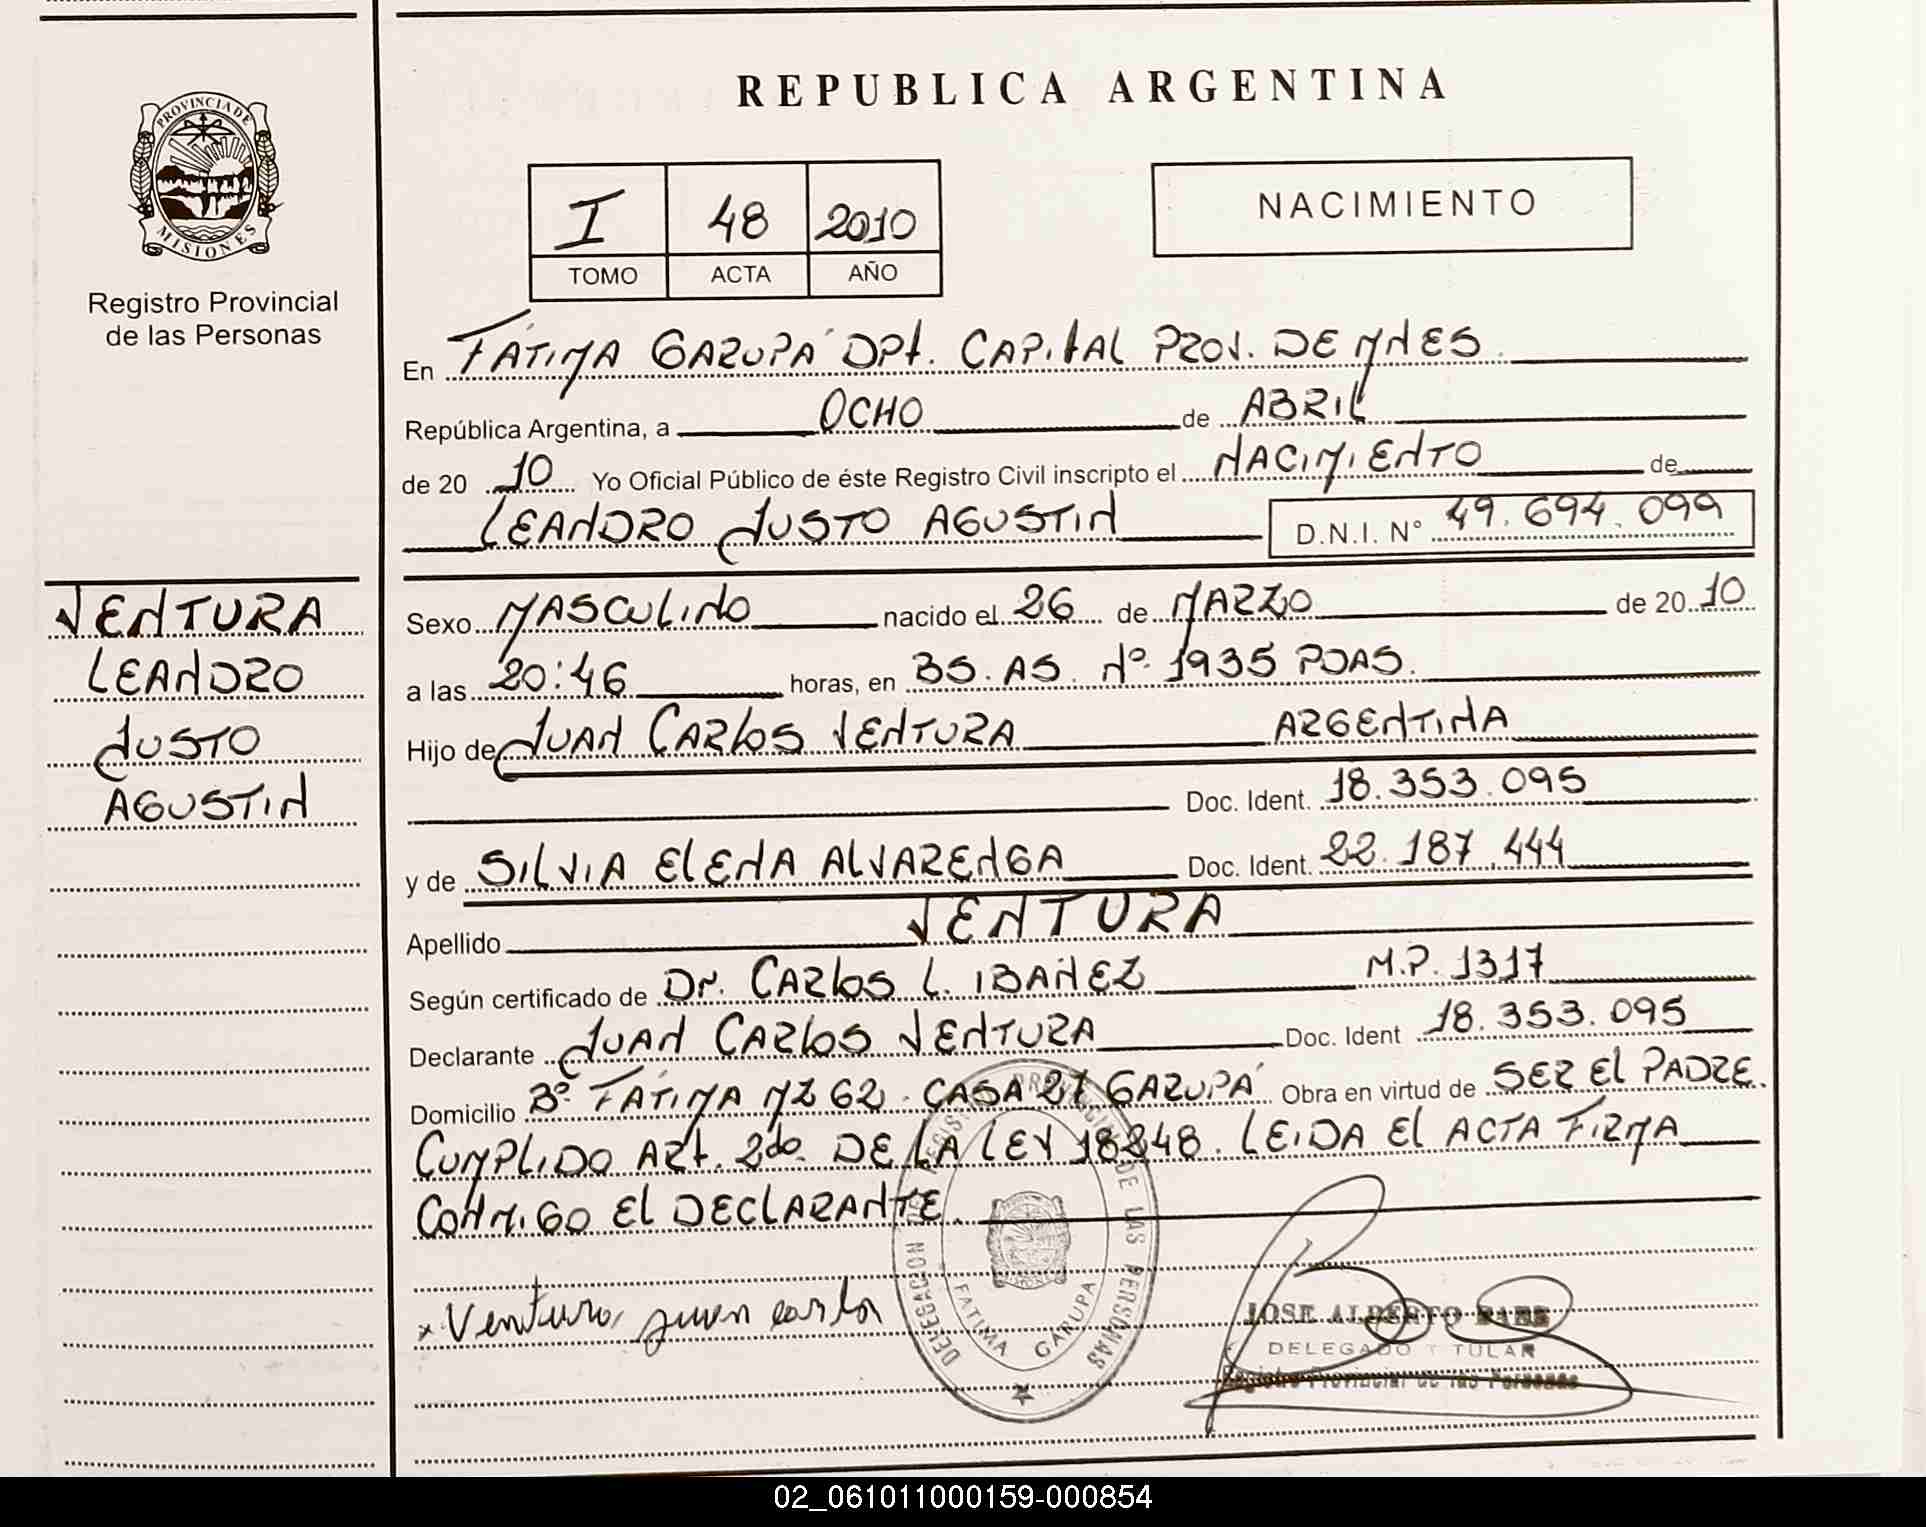 REPUBLICA ARGENTINA
PROVINCIA DE
MISIONES
Registro Provincial
de las Personas
I 48 2010
TOMO ACTA AÑO
NACIMIENTO
En FÁTIMA GARUPÁ DPt. CAPITAL PROV. DE MNES.
República Argentina, a OCHO de ABRIL
de 20 10 Yo Oficial Público de éste Registro Civil inscripto el NACIMIENTO de
LEANDRO JUSTO AGUSTIN D.N.I. N° 49.694.099
VENTURA
LEANDRO
JUSTO
AGUSTIN
Sexo MASCULINO nacido el 26 de MARZO de 20 10
a las 20:46 horas, en BS. AS. Nº 1935 PDAS.
Hijo de JUAN CARLOS VENTURA ARGENTINA
Doc. Ident. 18.353.095
y de SILVIA ELENA ALVARENGA Doc. Ident. 22.187.444
Apellido VENTURA
Según certificado de Dr. CARLOS L. IBAÑEZ M.P. 1317
Declarante JUAN CARLOS VENTURA Doc. Ident 18.353.095
Domicilio Bº FÁTIMA MZ 62 CASA 21 GARUPÁ Obra en virtud de SER EL PADRE.
CUMPLIDO ARt. 2do. DE LA LEY 18248. LEIDA EL ACTA FIRMA
CONMIGO EL DECLARANTE.
DELEGACION DEL REGISTRO PROVINCIAL DE LAS PERSONAS
FATIMA GARUPA
x Ventura, juan carlos
JOSE ALBERTO
DELEGADO TITULAR
Registro Provincial de las Personas
02_061011000159-000854